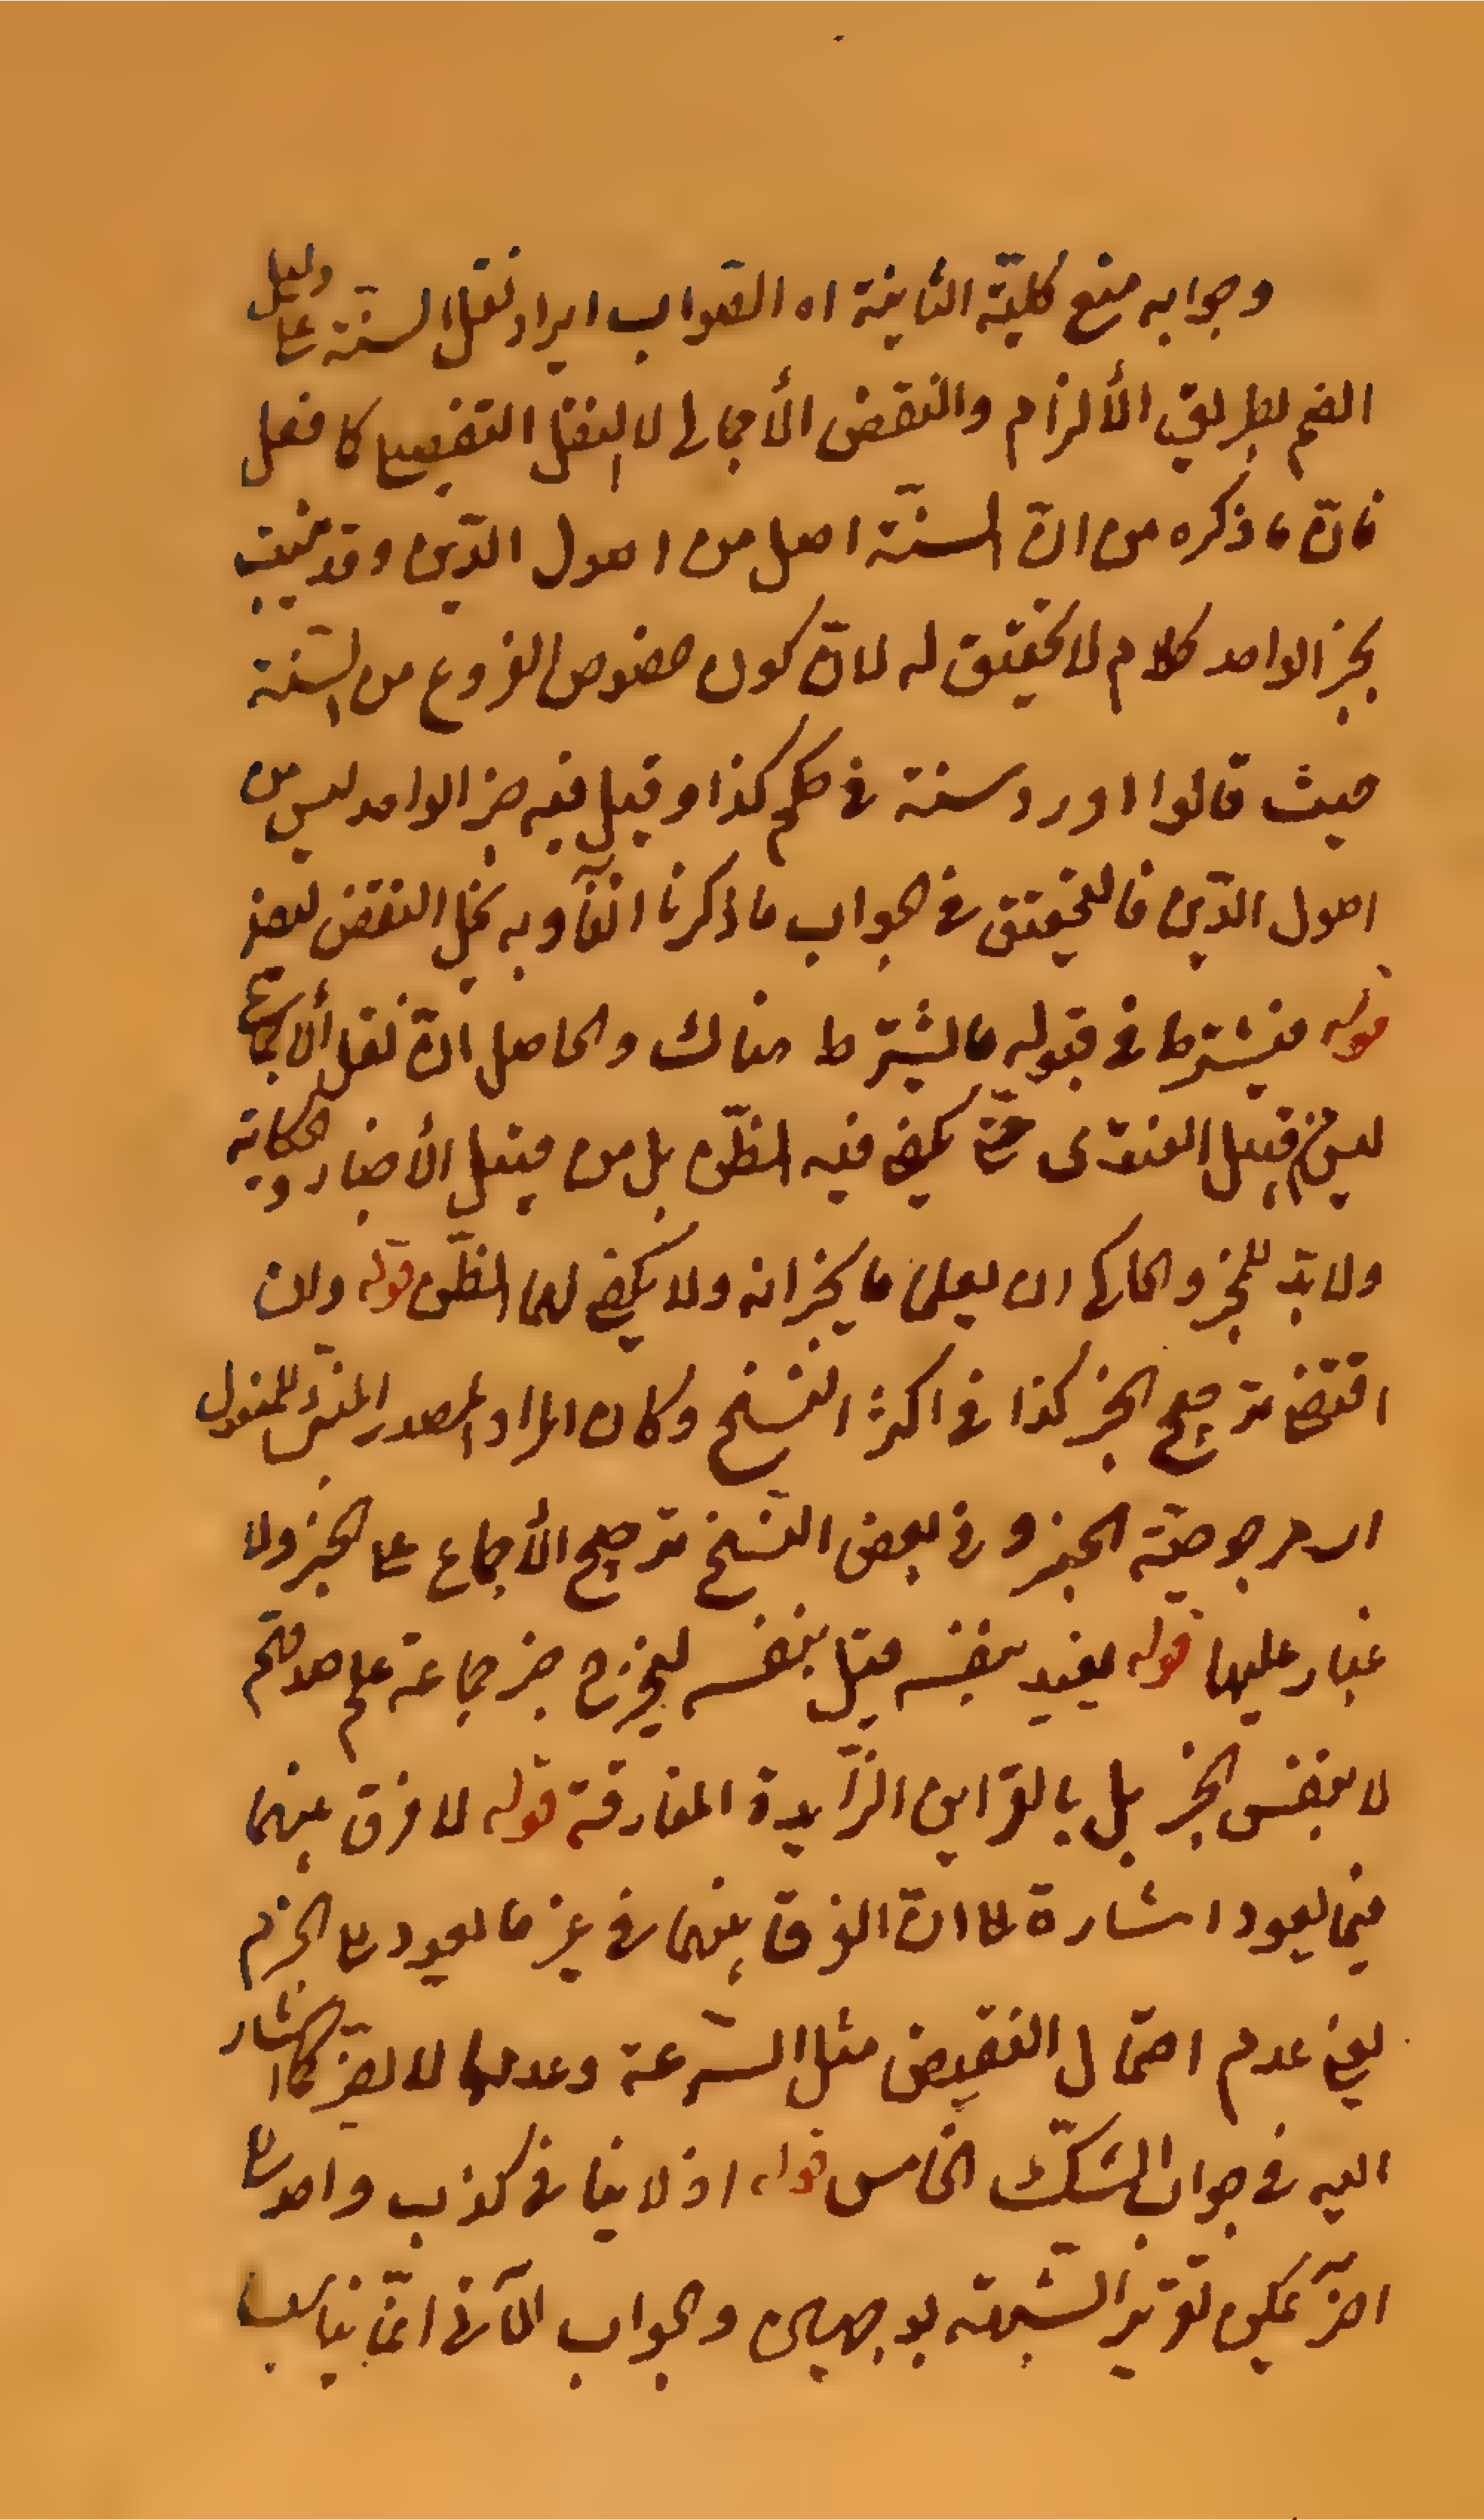 وجوابه منع كليّة الثانية اه الصّواب ايراد نقل السنّة على دليل
الخصم بطريق الألزام والنقض الأجمالى لا النقض التفصيلى كما فعل
فانّ ما ذكره من انّ السنّة اصل من اصول الدّين وقد ثبت
بخبر الواحد كلام لا تحقيق له لانّ كون خصوص الفروع من السنّة
حيث قالوا اورد سنة فى حكم كذا وقبل فيه خبر الواحد ليس من
اصول الدّين فالتحقيق فى الجواب ما ذكرنا انفاً وبه ينحل النقض
قوله فيشترط فى قبوله ما يشترط هناك والحاصل انّ نقل الأجماع
ليس من قبيل الفتوى حتّى يكفى فيه الظّن بل من قبيل الأخبار والحكاية
ولا بدّ للمخبر والحاكى ان يعلما ما يخبرانه ولا يكفى لهما الظّن قوله وان
اقتضى ترجيح الخبر كذا فى اكثر النسّخ وكان المراد المصدر المبنىّ للمفعول
اى مرجوحيّة الخبر وفى بعض النسّخ ترجيح الأجماع على الخبر ولا
غبار عليها قوله يفيد بنفسه قيل بنفسه ليخرج خبر جماعة علم صدقهم
لا بنفس الخبر بل بالقراين الزّآيدة المفارقة قوله لا فرق بينهما
فيما يعود اشارة الى انّ الفرق بينهما فى غير ما يعود الى الجزم
يعنى عدم احتمال النقيض مثل السّرعة وعدمها لا يضر كما اشار
اليه فى جواب الشكّ الخامس قوله اذ لا ينافى كذب واحد
اخر يمكن تقرير الشّبهة بوجهين والجواب الآتى انّما يناسب